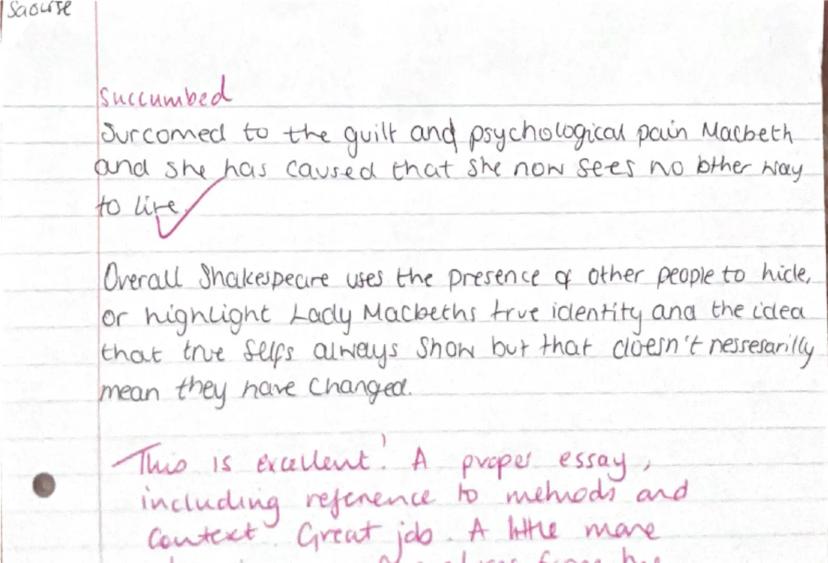 Saoirse
Succumbed
Surcomed to the guilt and psychological pain Macbeth
and she has caused that she now sees no other way
to live.
Overall Shakespeare uses the presence of other people to hide,
or highlight Lady Macbeths true identity and the idea
that true selfs always show but that doesn't nessesarilly
mean they have changed.
This is excellent! A proper essay,
including reference to methods and
context. Great job. A little more